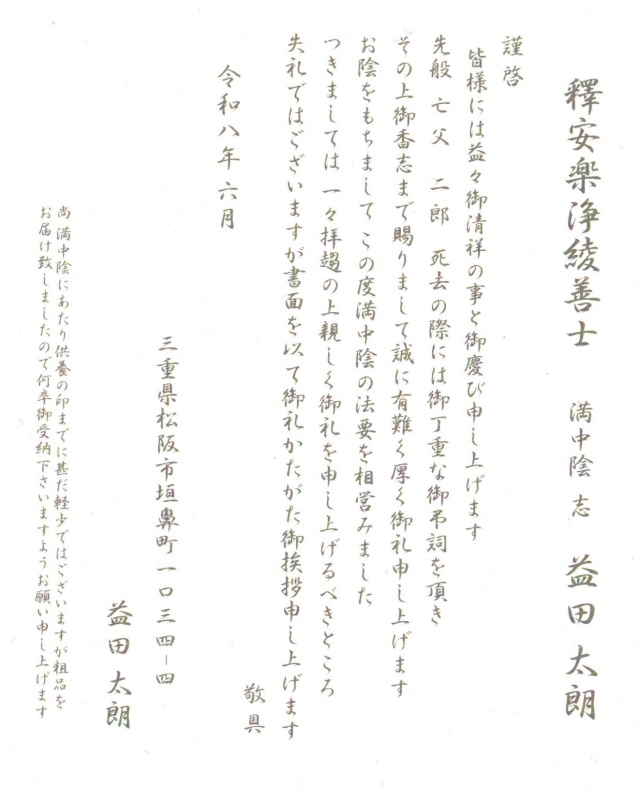 釋安楽浄綾善士　満中陰志　益田太朗
謹啓
皆様には益々御清祥の事と御慶び申し上げます
先般　亡父　二郎　死去の際には御丁重な御弔詞を頂き
その上御香志まで賜りまして誠に有難く厚く御礼申し上げます
お陰をもちまして この度満中陰の法要を相営みました
つきましては 一々拝趨の上親しく御礼を申し上げるべきところ
失礼ではございますが書面を以て御礼かたがた御挨拶申し上げます
敬具
令和八年六月
三重県松阪市垣鼻町一〇三四－四
益田太朗
尚 満中陰にあたり供養の印までに甚だ軽少ではございますが粗品を
お届け致しましたので何卒御受納下さいますようお願い申し上げます